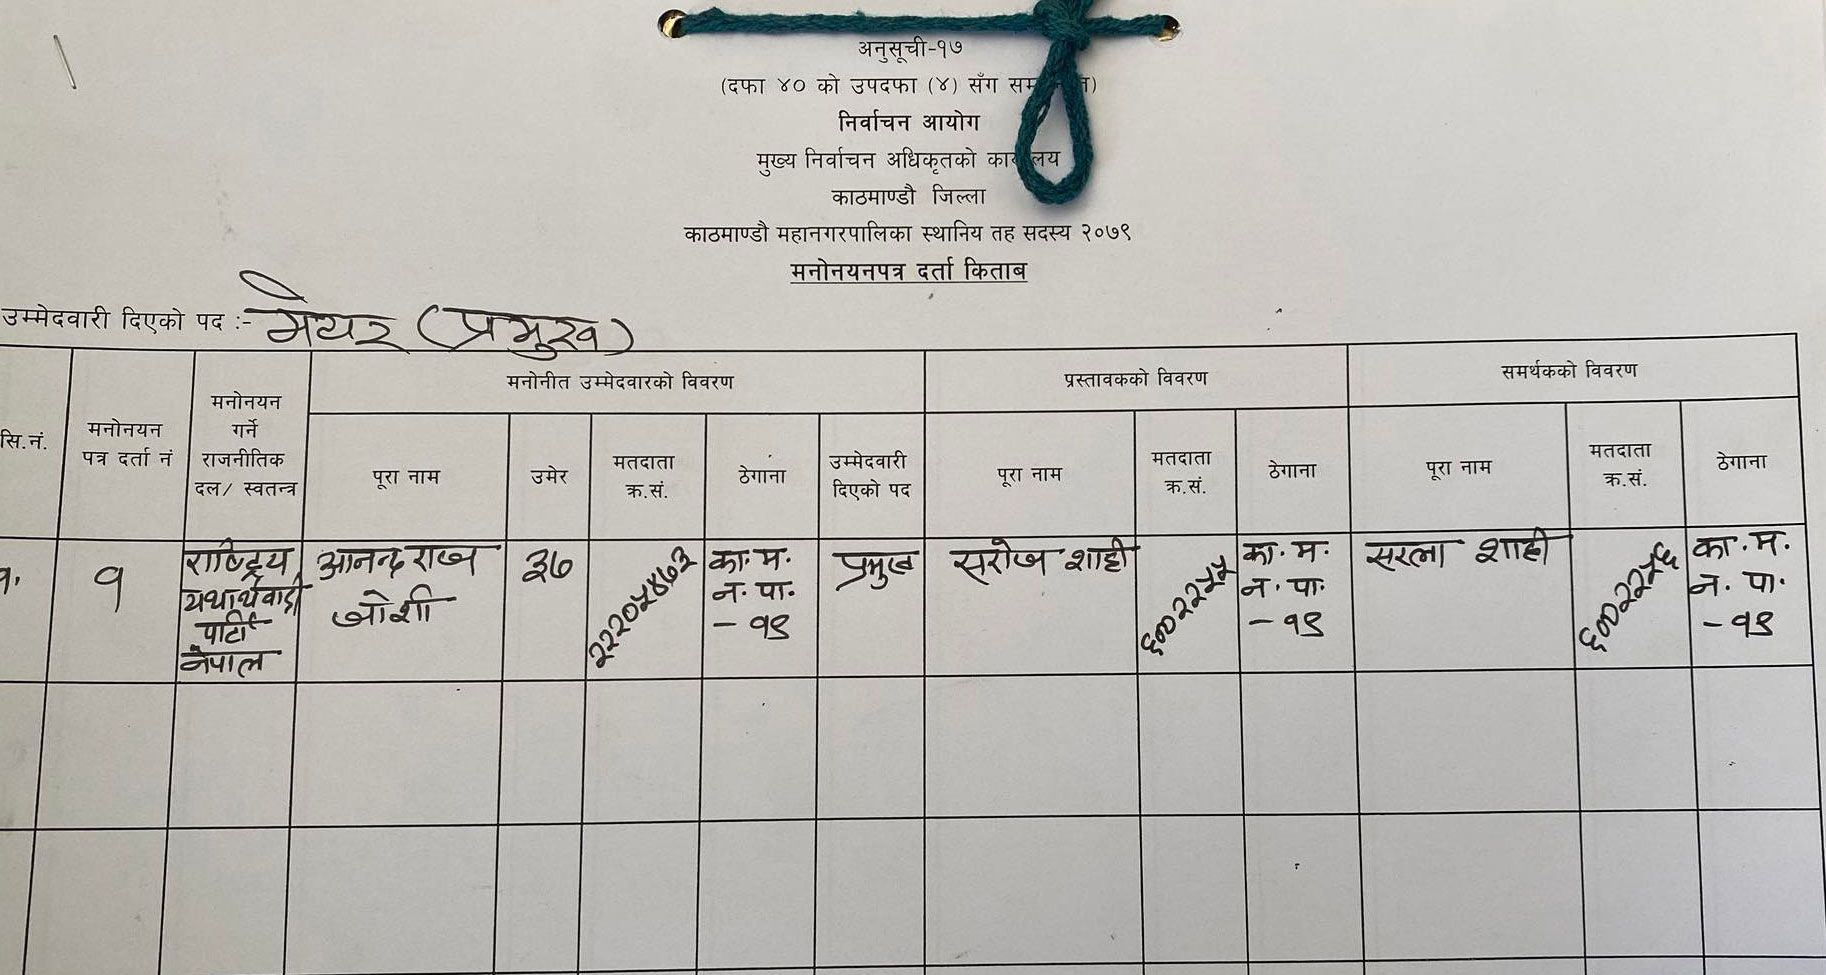 अनुसूची-१७
(दफा ४० को उपदफा (४) सँग
निर्वाचन आयोग
मुख्य निर्वाचन अधिकृतको
काठमाण्डौ जिल्ला
काठमाण्डौ महानगरपालिका स्थानिय तह सदस्य २०७९
मनोनयनपत्र दर्ता किताब
उम्मेदवारी दिएको पद :- मेयर (प्रमुख)
मनोनीत उम्मेदवारको विवरण
प्रस्तावकको विवरण
समर्थकको विवरण
सि.नं.
मनोनयन
पत्र दर्ता नं
मनोनयन
गर्ने
राजनीतिक
दल/ स्वतन्त्र
पूरा नाम
उमेर
मतदाता
क्र.सं.
ठेगाना
उम्मेदवारी
दिएको पद
पूरा नाम
मतदाता
क्र.सं.
ठेगाना
पूरा नाम
मतदाता
क्र.सं.
ठेगाना
१.
१
राष्ट्रिय
यथार्थवादी
पार्टी
नेपाल
आनन्द राज
जोशी
३७
२२२०५४७३
का.म.
न.पा.
- १९
प्रमुख
सरोज शाही
का.म.
न.पा.
- १९
सरला शाही
का.म.
न.पा.
- १९